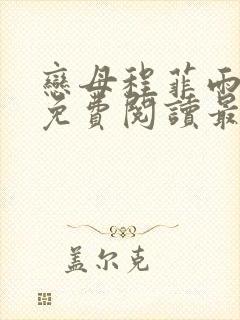 戀母程菲雨
免費閱讀最
盖尔克